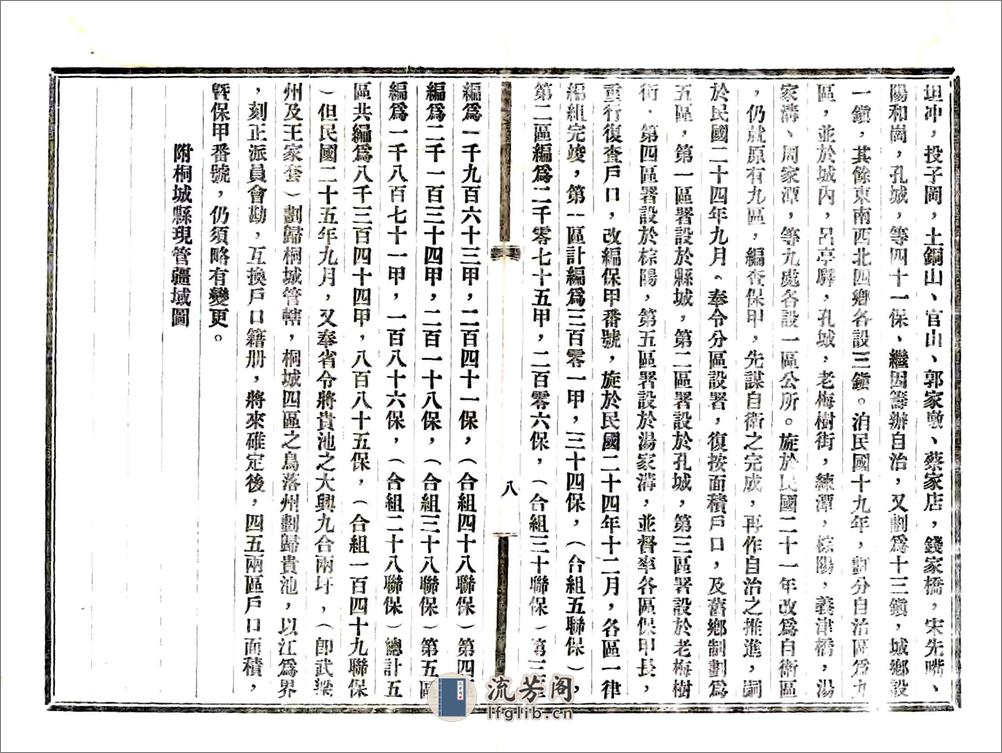 坦冲，投子岡，土銅山、官山、郭家墩、蔡家店，錢家橋，宋先嘴、
陽和崗，孔城，等四十一保、繼因籌辦自治，又劃爲十三鎮，城鄉設
一鎮，其餘東南西北四鄉各設三鎮。洎民國十九年，劃分自治區爲九
區，並於城內，呂亭驛，孔城，老梅樹街，練潭，樅陽，義津橋，湯
家溝、周家潭，等九處各設一區公所。旋於民國二十一年改爲自衛區
，仍就原有九區，編查保甲，先謀自衛之完成，再作自治之推進，嗣
於民國二十四年九月。奉令分區設署，復按面積戶口，及舊鄉制劃爲
五區，第一區署設於縣城，第二區署設於孔城，第三區署設於老梅樹
街．第四區署設於樅陽，第五區署設於湯家溝，並督率各區保甲長，
重行復查戶口，改編保甲番號，旋於民國二十四年十二月，各區一律
編組完竣，第一區計編爲三百零一甲，三十四保，（合組五聯保），
第二區編爲二千零七十五甲，二百零六保，（合組三十聯保）第三區
八
編爲一千九百六十三甲，二百四十一保，（合組四十八聯保）第四區
編爲二千一百三十四甲，二百一十八保，（合組三十八聯保）第五區
編爲一千八百七十一甲，一百八十六保，（合組二十八聯保）總計五
區共編爲八千三百四十四甲，八百八十五保，（合組一百四十九聯保
）但民國二十五年九月，又奉省令將貴池之大興九合兩圩，（卽武梁
州及王家套）劃歸桐城管轄，桐城四區之鳥落州劃歸貴池，以江爲界
，刻正派員會勘，互換戶口籍册，將來確定後，四五兩區戶口面積，
暨保甲番號，仍須略有變更。
附桐城縣現管疆域圖
流芳阁
lfglib.cn